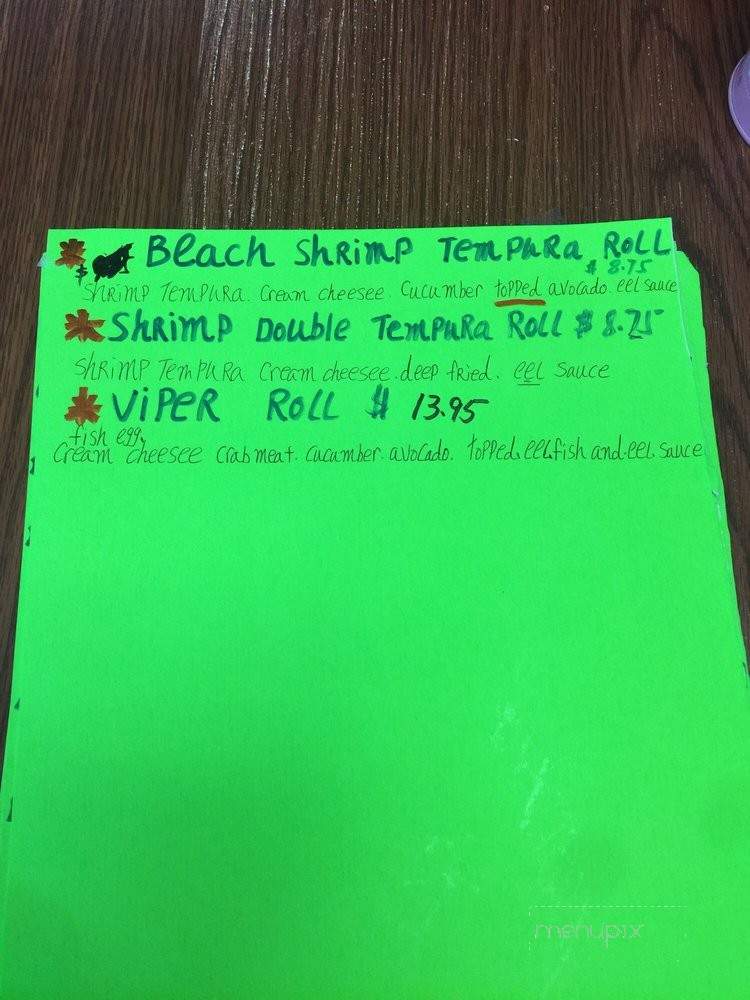 Beach Shrimp Tempura Roll
$ 8.75
Shrimp Tempura. Cream cheesee. Cucumber topped avocado. eel sauce
Shrimp Double Tempura Roll $ 8.25
Shrimp Tempura Cream cheesee. deep fried. eel sauce
Viper Roll $ 13.95
fish egg,
Cream cheesee crab meat. cucumber. avocado. topped. eel fish and eel sauce
menupix